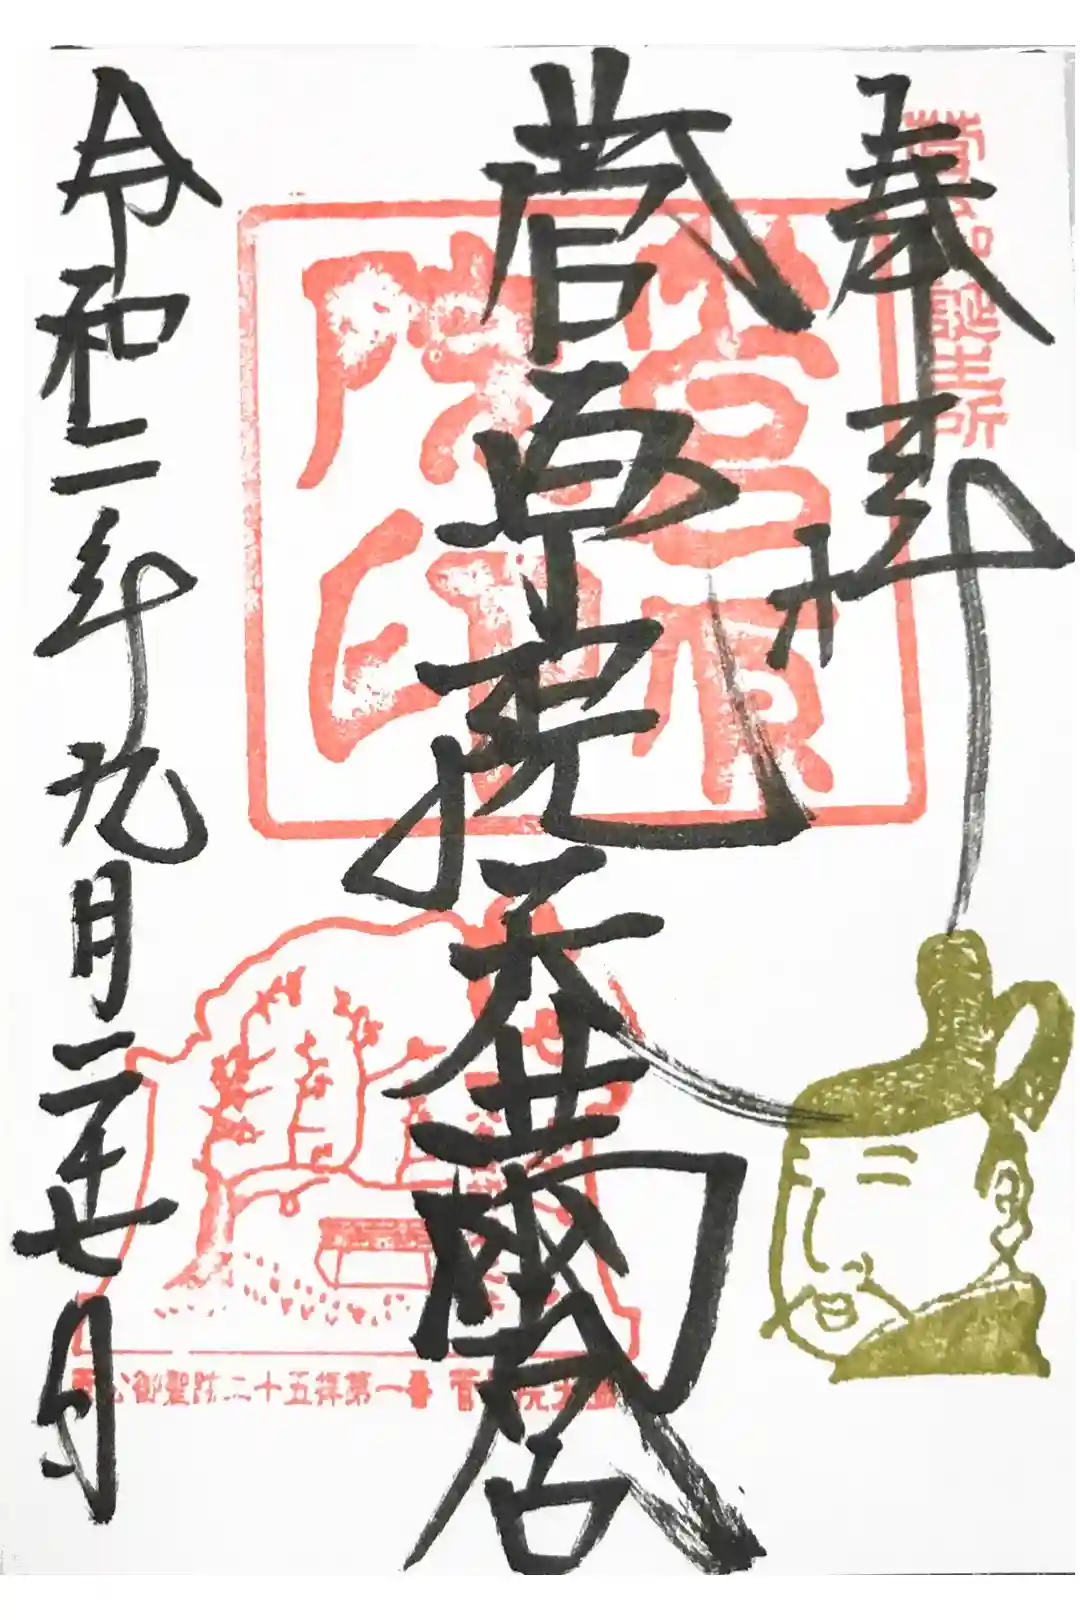 奉拝
菅公御誕生所
菅原院天満宮
菅原院印
令和二年九月二十七日
菅公御聖跡二十五拝第一番 菅原院天満宮